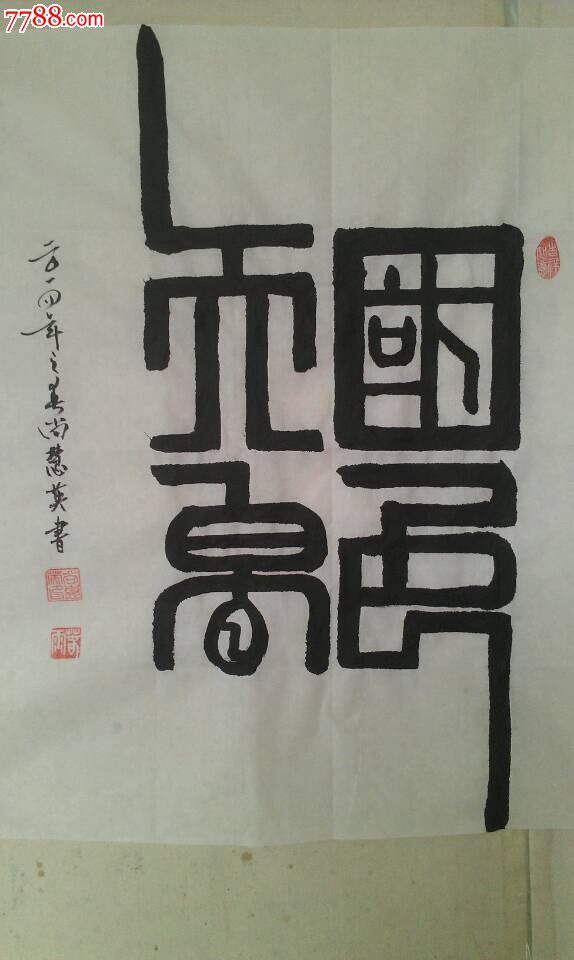 7788.com
國色
天香
二〇一四年之春尚慧英書